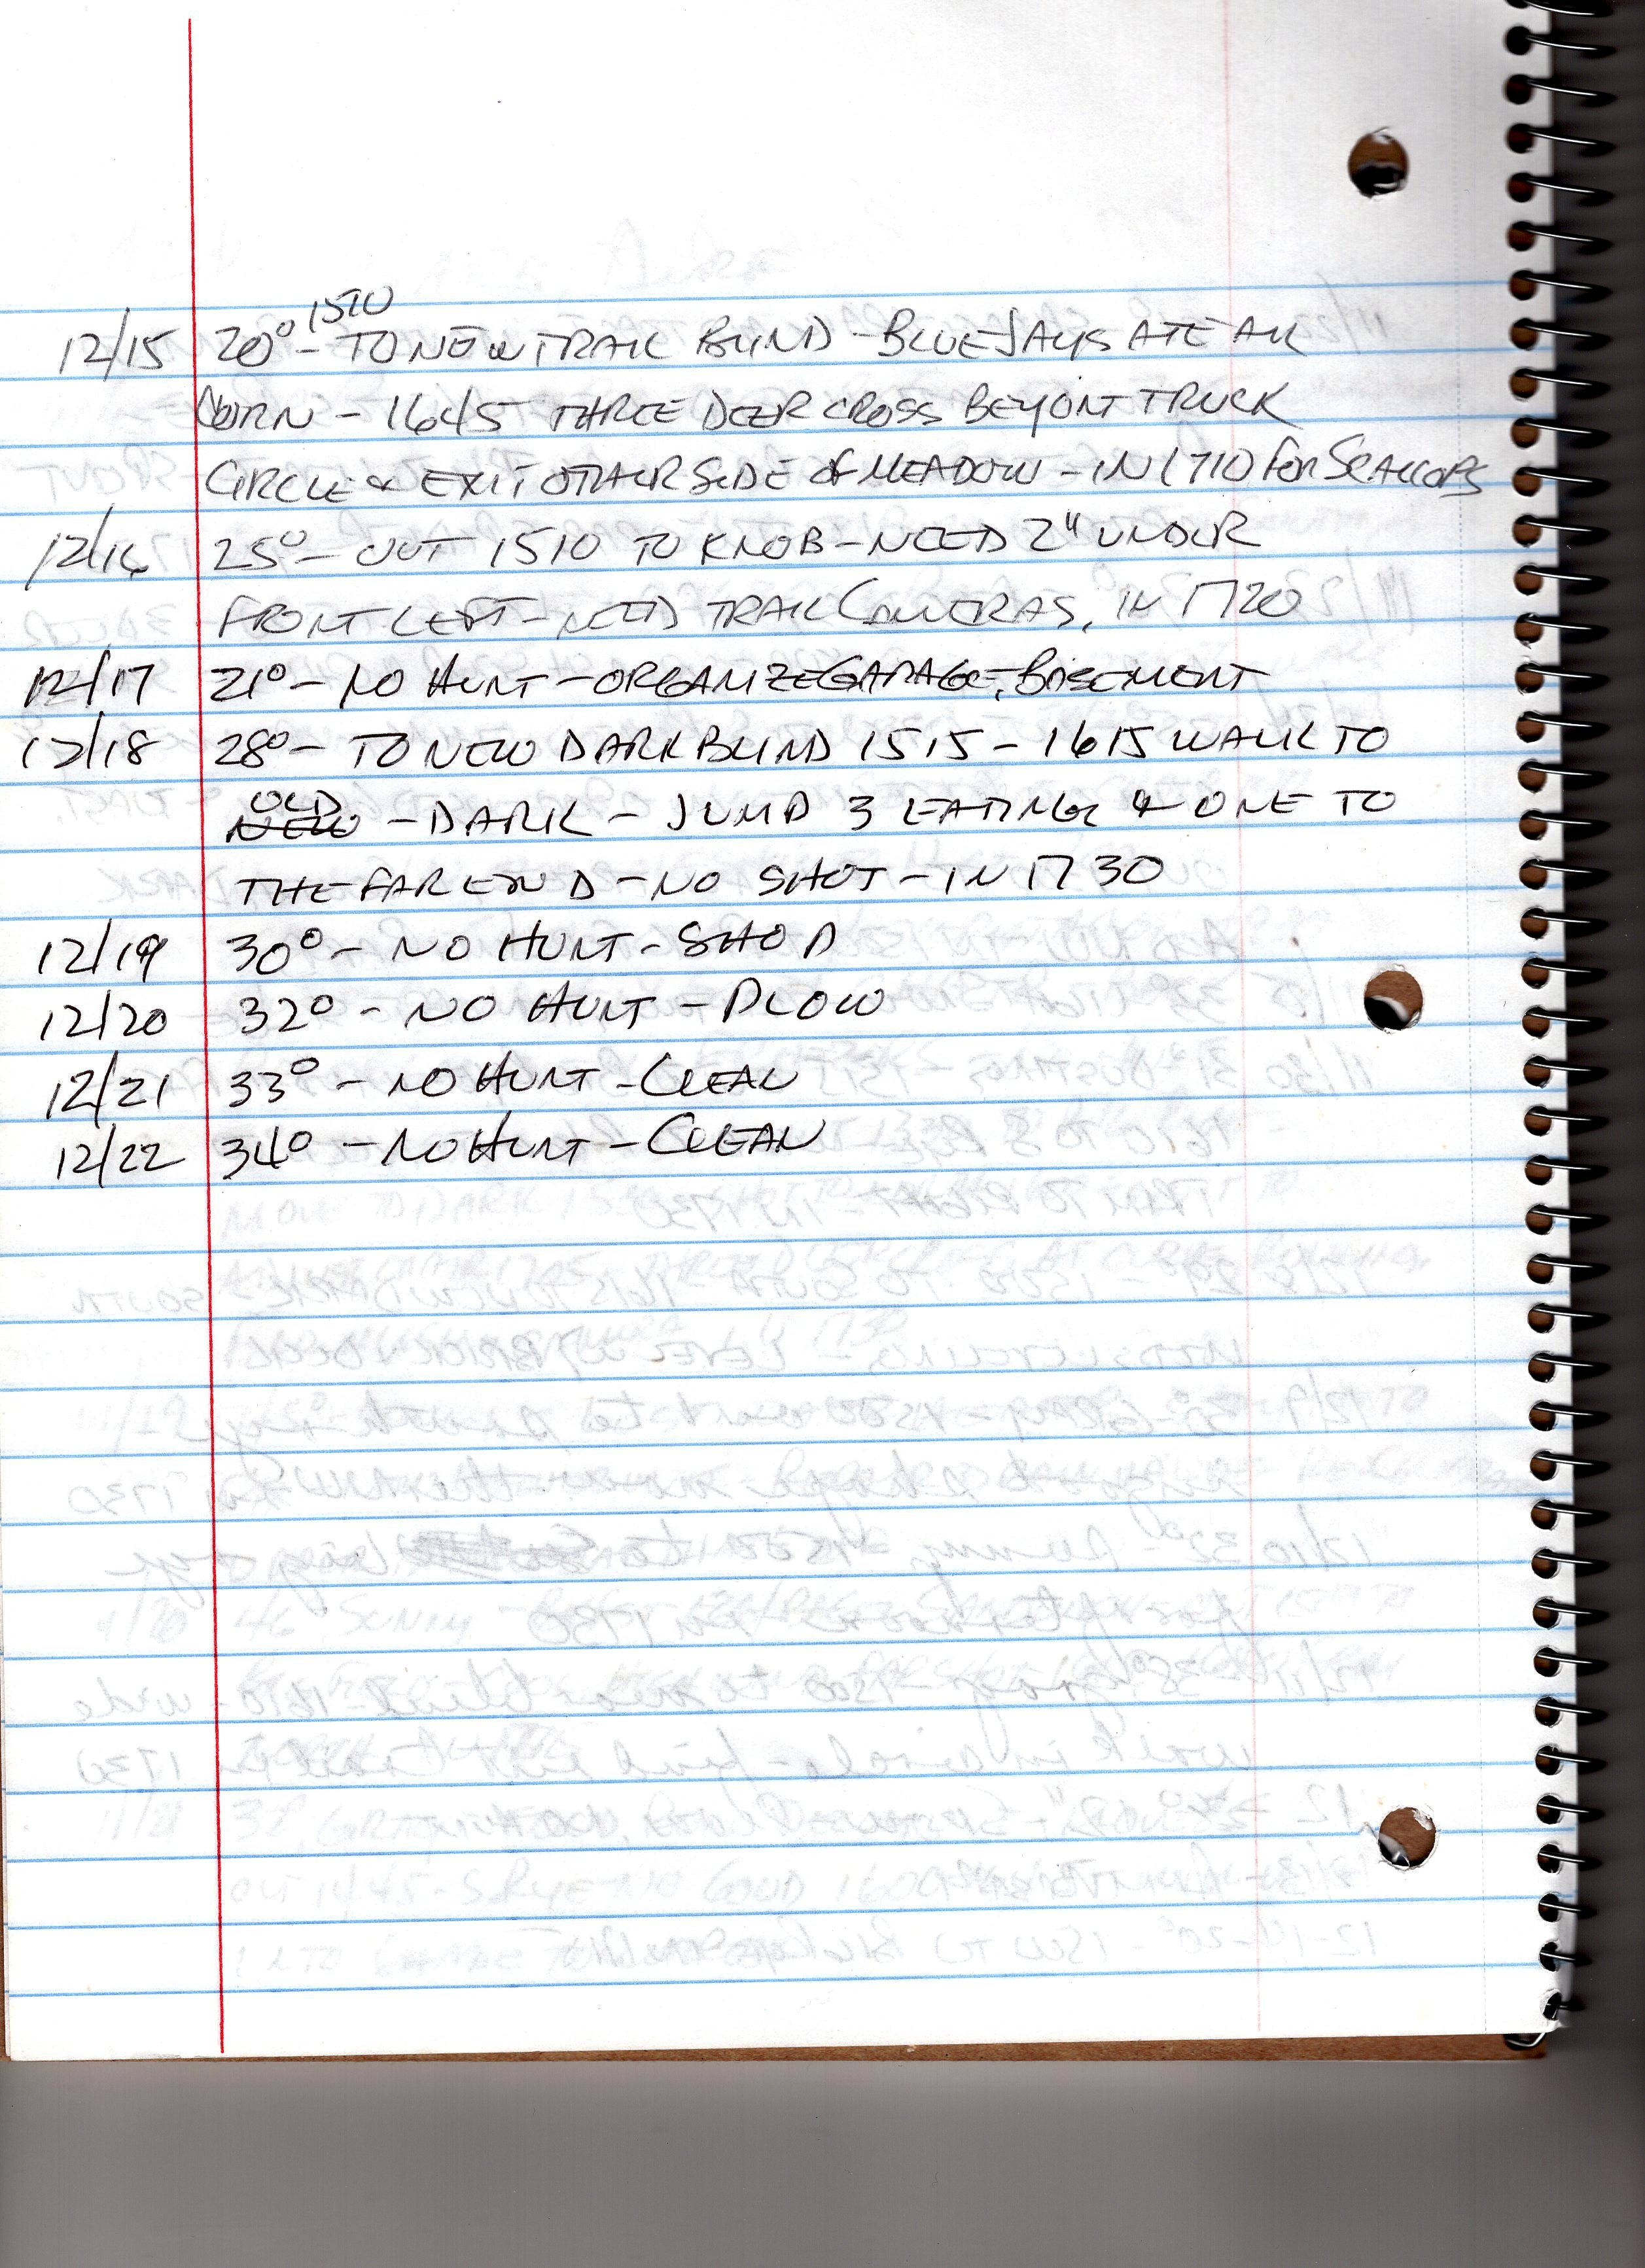 1510
12/15 20° - TO NEW TRAIL BLIND - BLUE JAYS ATE ALL
CORN - 1645 THREE DEER CROSS BEYONT TRUCK
CIRCLE & EXIT OTHER SIDE OF MEADOW - IN 1710 FOR SCALLOPS
12/16 25° - OUT 1510 TO KNOB - NEED 2" UNDER
FRONT LEFT - NEED TRAIL CAMERAS, IN 1720
12/17 21° - NO HUNT - ORGANIZE GARAGE, BASEMENT
12/18 28° - TO NEW DARK BLIND 1515 - 1615 WALK TO
OLD
NEW - DARK - JUMP 3 EATING & ONE TO
THE FAR END - NO SHOT - IN 1730
12/19 30° - NO HUNT - SHOP
12/20 32° - NO HUNT - PLOW
12/21 33° - NO HUNT - CLEAN
12/22 34° - NO HUNT - CLEAN